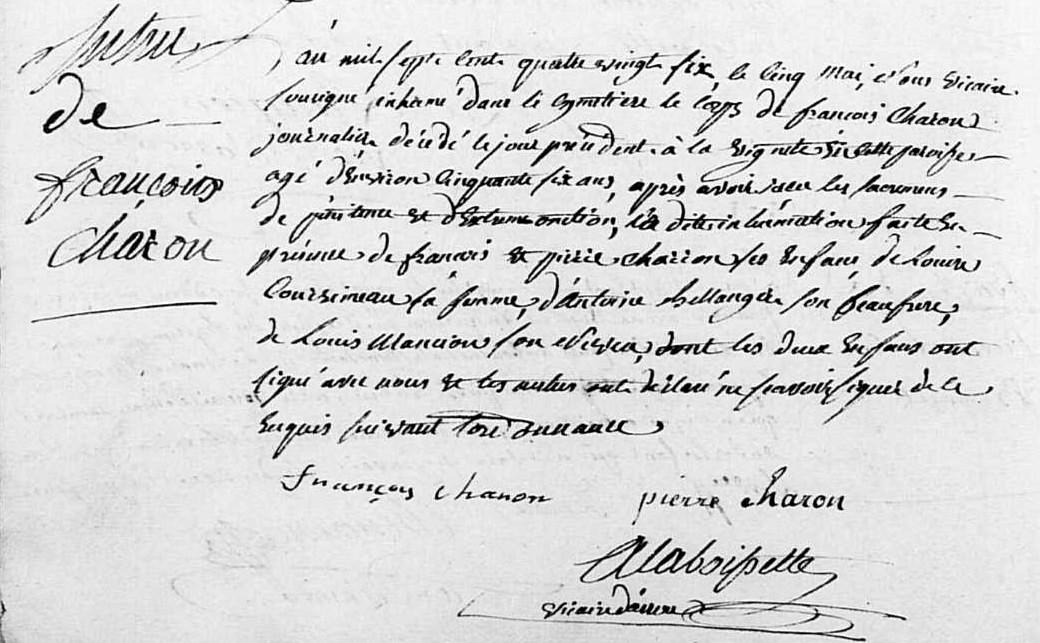 de
françois
charon
au mil sept cent quatre vingt six, le cinq mai, nous vicaire
sousigné, inhumé dans le cymetière le corps de françois Charon
journalier décédé le jour précédent à la vignette de cette paroisse
agé d'environ cinquante six ans, après avoir recu les sacremens
de pénitence et d'extreme onction, la dite inhumation faite en
présence de françois et pierre charron ses enfans, de Louise
Coursimeau sa femme, d'Antoine bellanger son beaufrere,
de Louis Mancion son neveu, dont les deux enfans ont
signé avec nous et les autres ont déclaré ne scavoir signer de ce
enquis suivant l'ordonnance
françois charon
pierre charon
vicaire